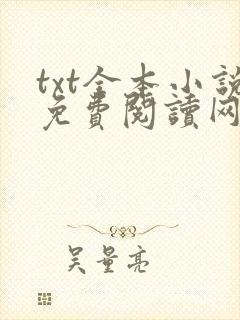 txt全本小說
免費閱讀网
吴量亮